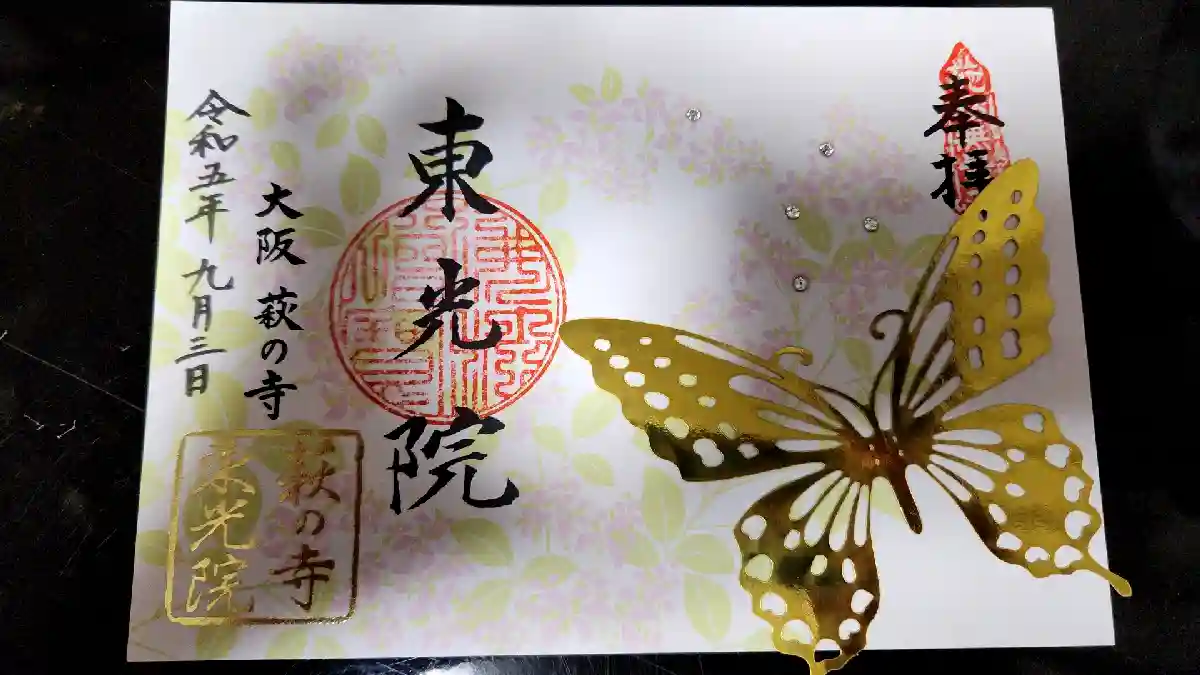 奉拝
東光院
大阪 萩の寺
令和五年 九月三日
萩の寺
東光院